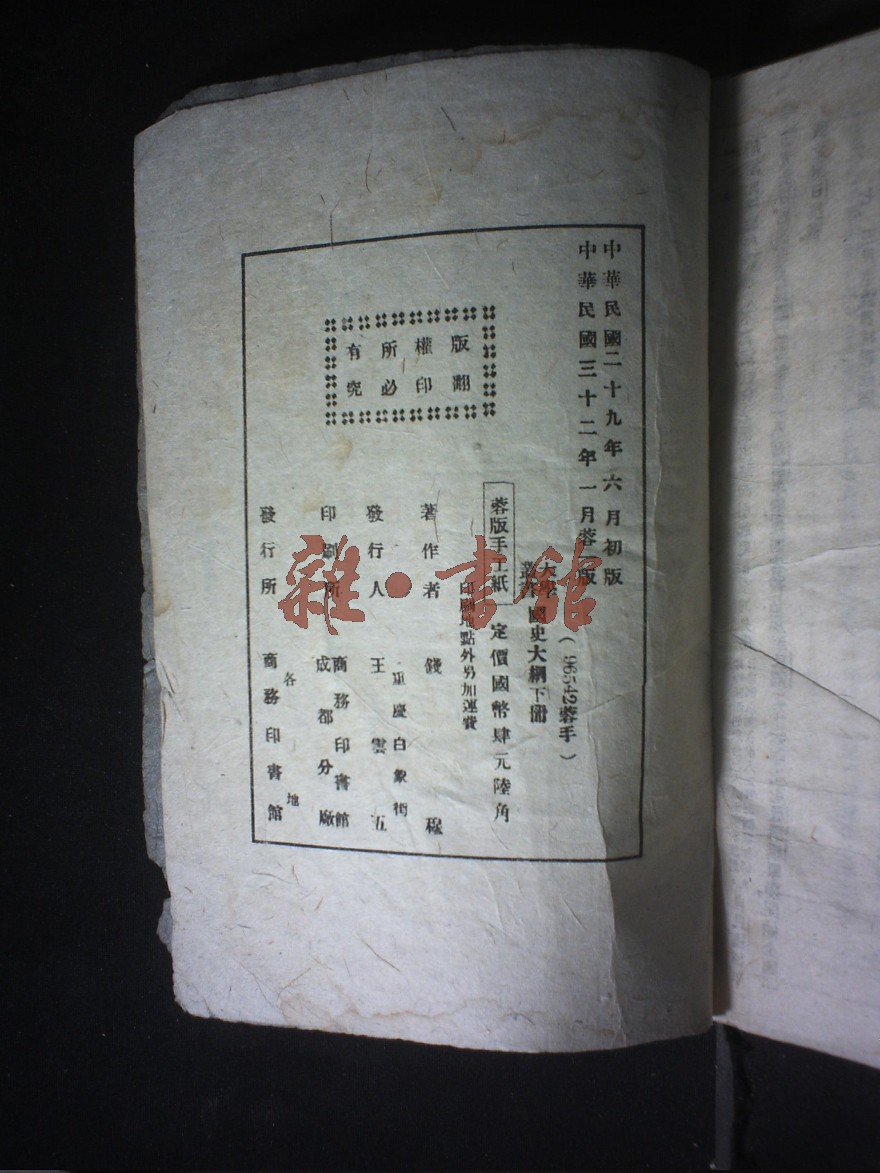 中華民國二十九年六月初版
中華民國三十二年一月蓉一版
(96542蓉手)
大學叢書 國史大綱下冊
蓉版手工紙 定價國幣肆元陸角
印刷地點外另加運費
著作者 錢 穆
重慶白象街
發行人 王雲五
商務印書館
印刷所 成都分廠
各地
發行所 商務印書館
版權所有
翻印必究
雜·書館